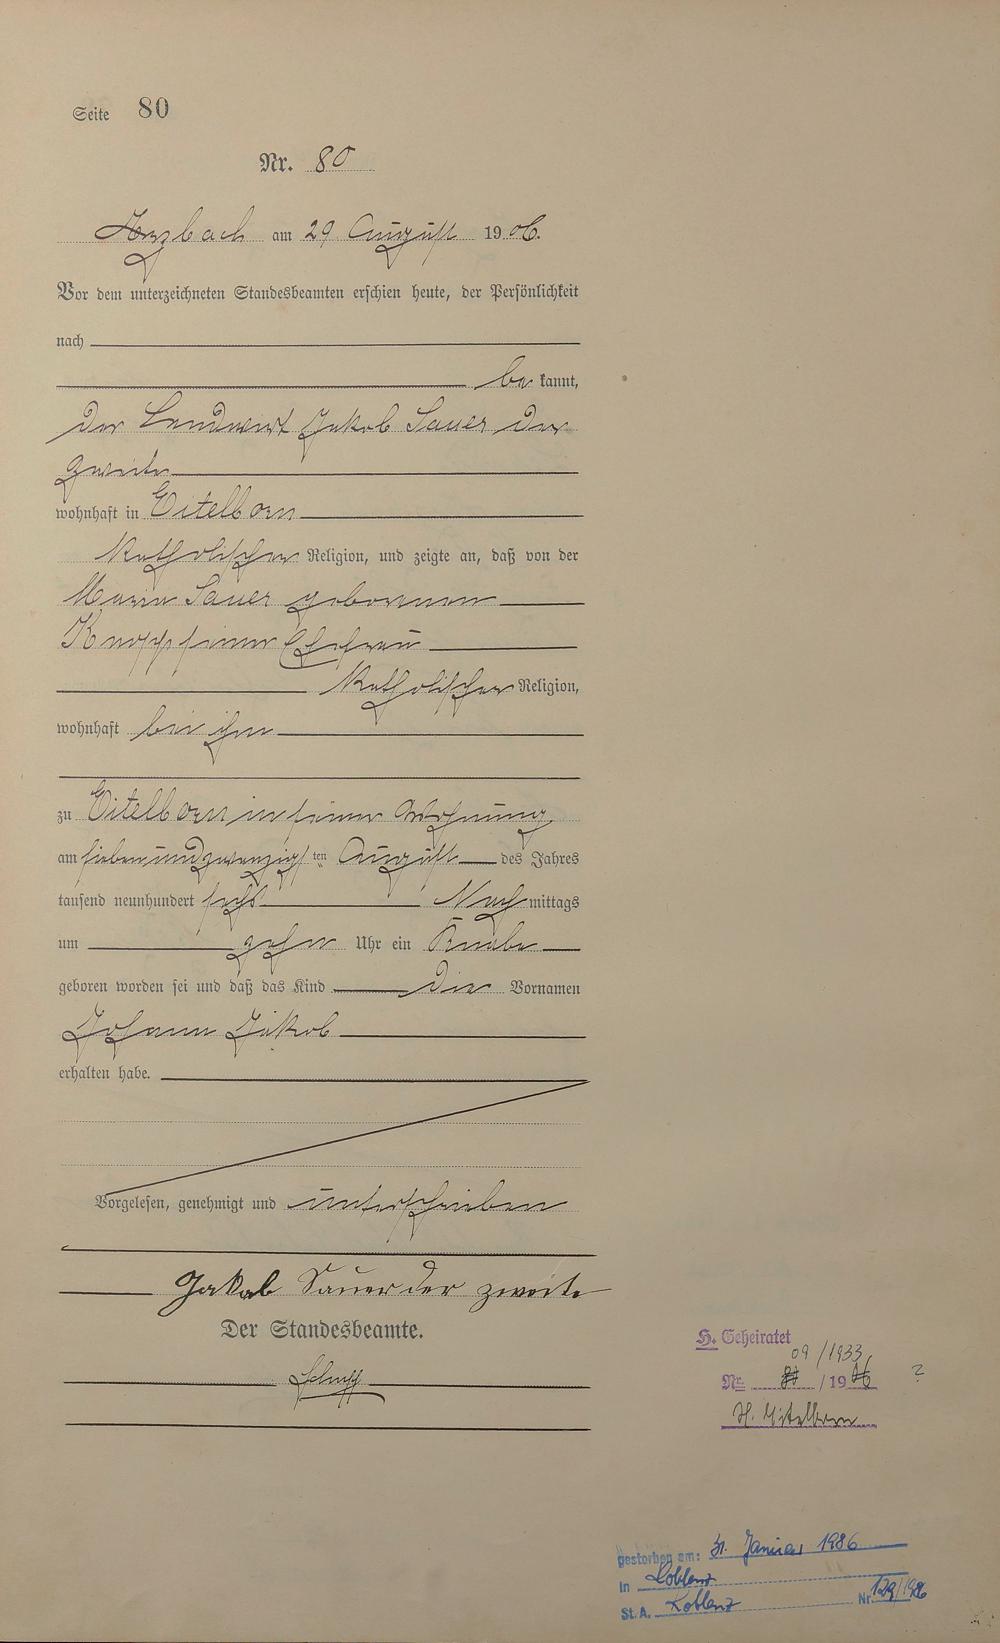 Seite 80
Nr. 80
Arzbach am 29 August 1906.
Vor dem unterzeichneten Standesbeamten erschien heute, der Persönlichkeit
nach
be kannt,
Der Landwirt Jakob Sauer der
zweite
wohnhaft in Eitelborn
katholischer Religion, und zeigte an, daß von der
Maria Sauer geborenen
Knopp seiner Ehefrau
katholischer Religion,
wohnhaft bei ihm
zu Eitelborn in seiner Wohnung
am siebenundzwanzigsten August des Jahres
tausend neunhundert sechs Nachmittags
um zehn Uhr ein Knabe
geboren worden sei und daß das Kind die Vornamen
Johann Jakob
erhalten habe.
Vorgelesen, genehmigt und unterschrieben
Jakob Sauer der zweite
Der Standesbeamte.
H. Geheiratet
09/1933,
Nr. /19 ?
H. Eitelborn
gestorben am: 31. Januar 1986
in Koblenz
St. A. Koblenz Nr. 129/1986